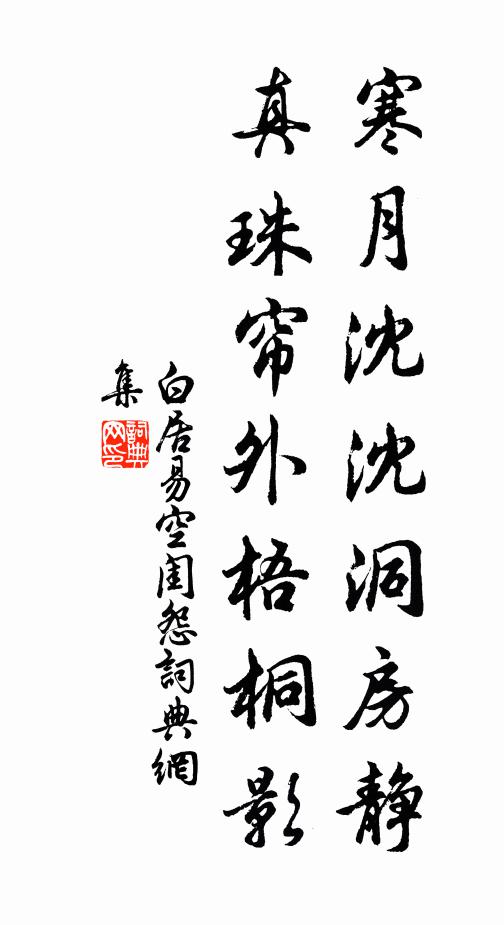 寒月沈沈洞房静
真珠帘外梧桐影
白居易空闺怨詞典網
集
詞典
网印